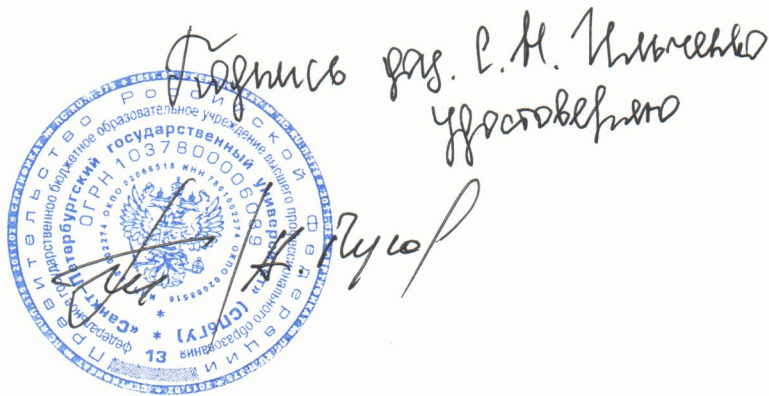 Подпись доц. С. Н. Ильченко
удостоверяю
Правительство Российской Федерации
федеральное государственное бюджетное образовательное учреждение высшего профессионального образования
«Санкт-Петербургский государственный университет» (СПбГУ)
ОГРН 1037800006089
ОКПО 02068516 ИНН 7801002274
13